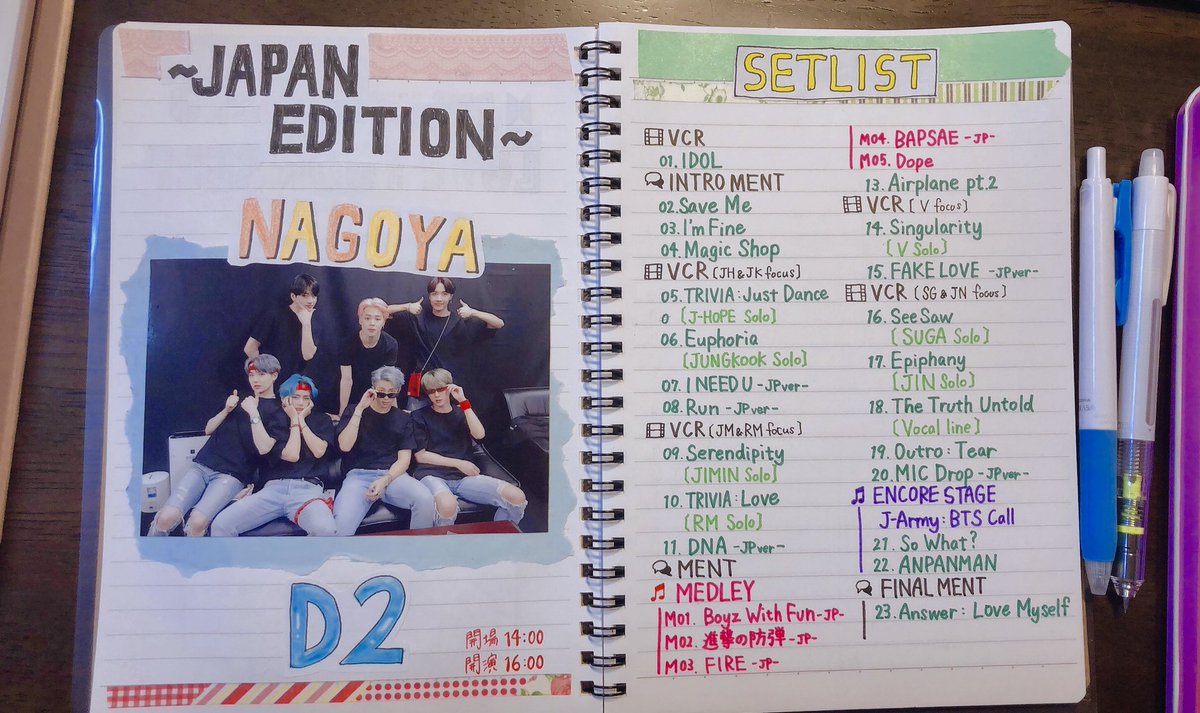 ~JAPAN
EDITION~
NAGOYA
D2
開場 14:00
開演 16:00
SETLIST
VCR
01. IDOL
INTRO MENT
02. Save Me
03. I'm Fine
04. Magic Shop
VCR [JH & JK focus]
05. TRIVIA: Just Dance
[J-HOPE Solo]
06. Euphoria
[JUNGKOOK Solo]
07. I NEED U -JPver-
08. Run -JPver-
VCR [JM & RM focus]
09. Serendipity
[JIMIN Solo]
10. TRIVIA: Love
[RM Solo]
11. DNA -JPver-
MENT
MEDLEY
M01. Boyz With Fun -JP-
M02. 進撃の防弾 -JP-
M03. FIRE -JP-
M04. BAPSAE -JP-
M05. Dope
13. Airplane pt.2
VCR [V focus]
14. Singularity
[V Solo]
15. FAKE LOVE -JPver-
VCR [SG & JN focus]
16. SeeSaw
[SUGA Solo]
17. Epiphany
[JIN Solo]
18. The Truth Untold
[Vocal line]
19. Outro: Tear
20. MIC Drop -JPver-
ENCORE STAGE
J-Army: BTS Call
21. So What?
22. ANPANMAN
FINAL MENT
23. Answer: Love Myself